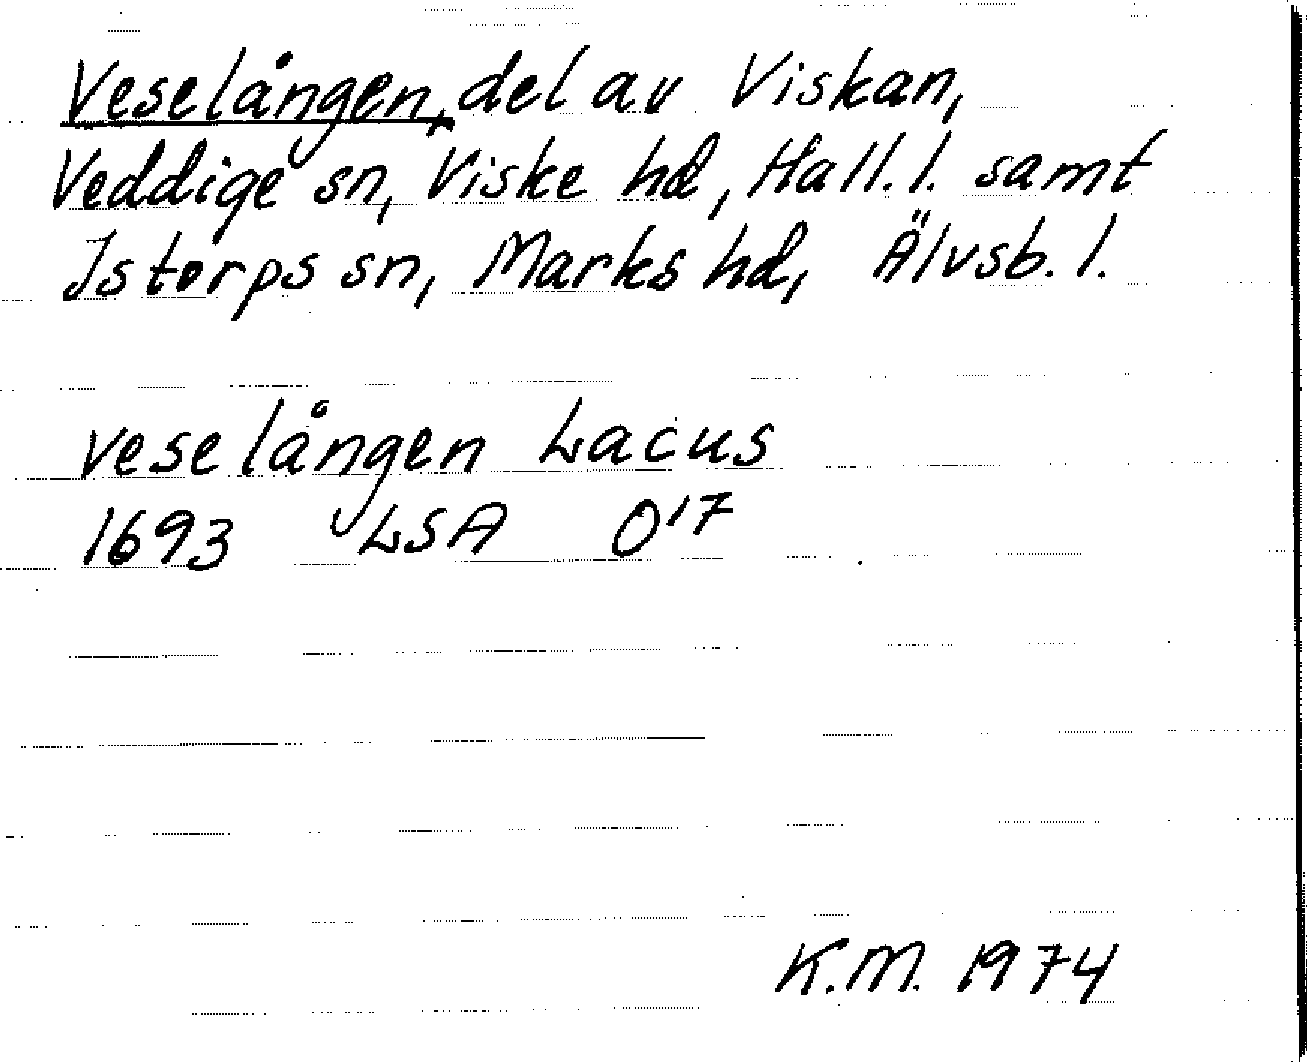 Veselången, del av Viskan,
Veddige sn, Viske hd, Hall. l. samt
Istorps sn, Marks hd, Älvsb. l.
Veselången Lacus
1693 LSA O'7
K.M. 1974